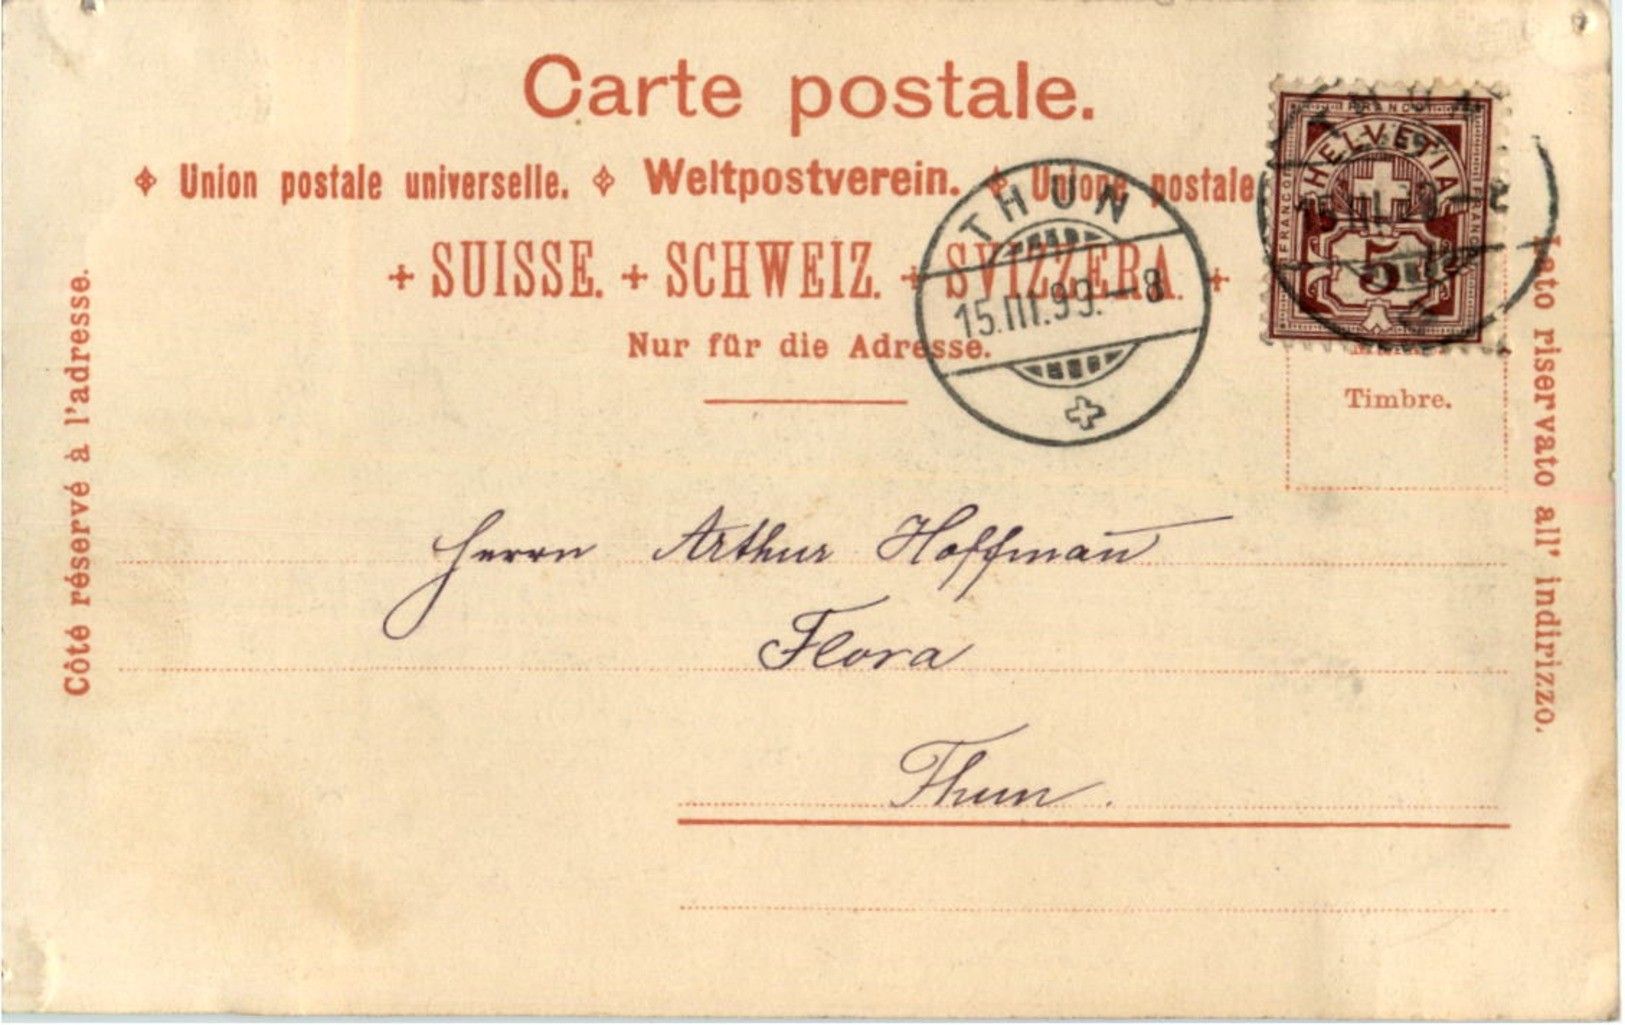 Carte postale.
Union postale universelle. Weltpostverein. Unione postale
+ SUISSE. + SCHWEIZ. + SVIZZERA. +
Nur für die Adresse.
Côté réservé à l'adresse.
Lato riservato all' indirizzo.
THUN
15.III.99.–8
FRANCO
HELVETIA
FRANCO
FRANCO
5
Timbre.
Herrn Arthur Hoffman̅
Flora
Thun.